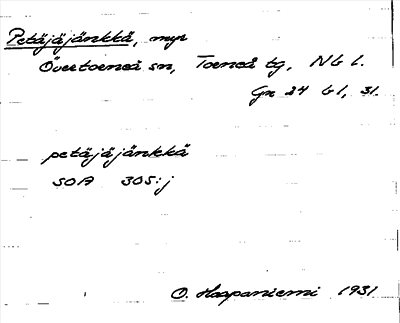 Petäjäjänkkä, myr
Övertorneå sn, Torneå tg, Nb l.
Gr 24 b 1, 31.
petäjäjänkkä
SOA 305:j
O. Haapaniemi 1931